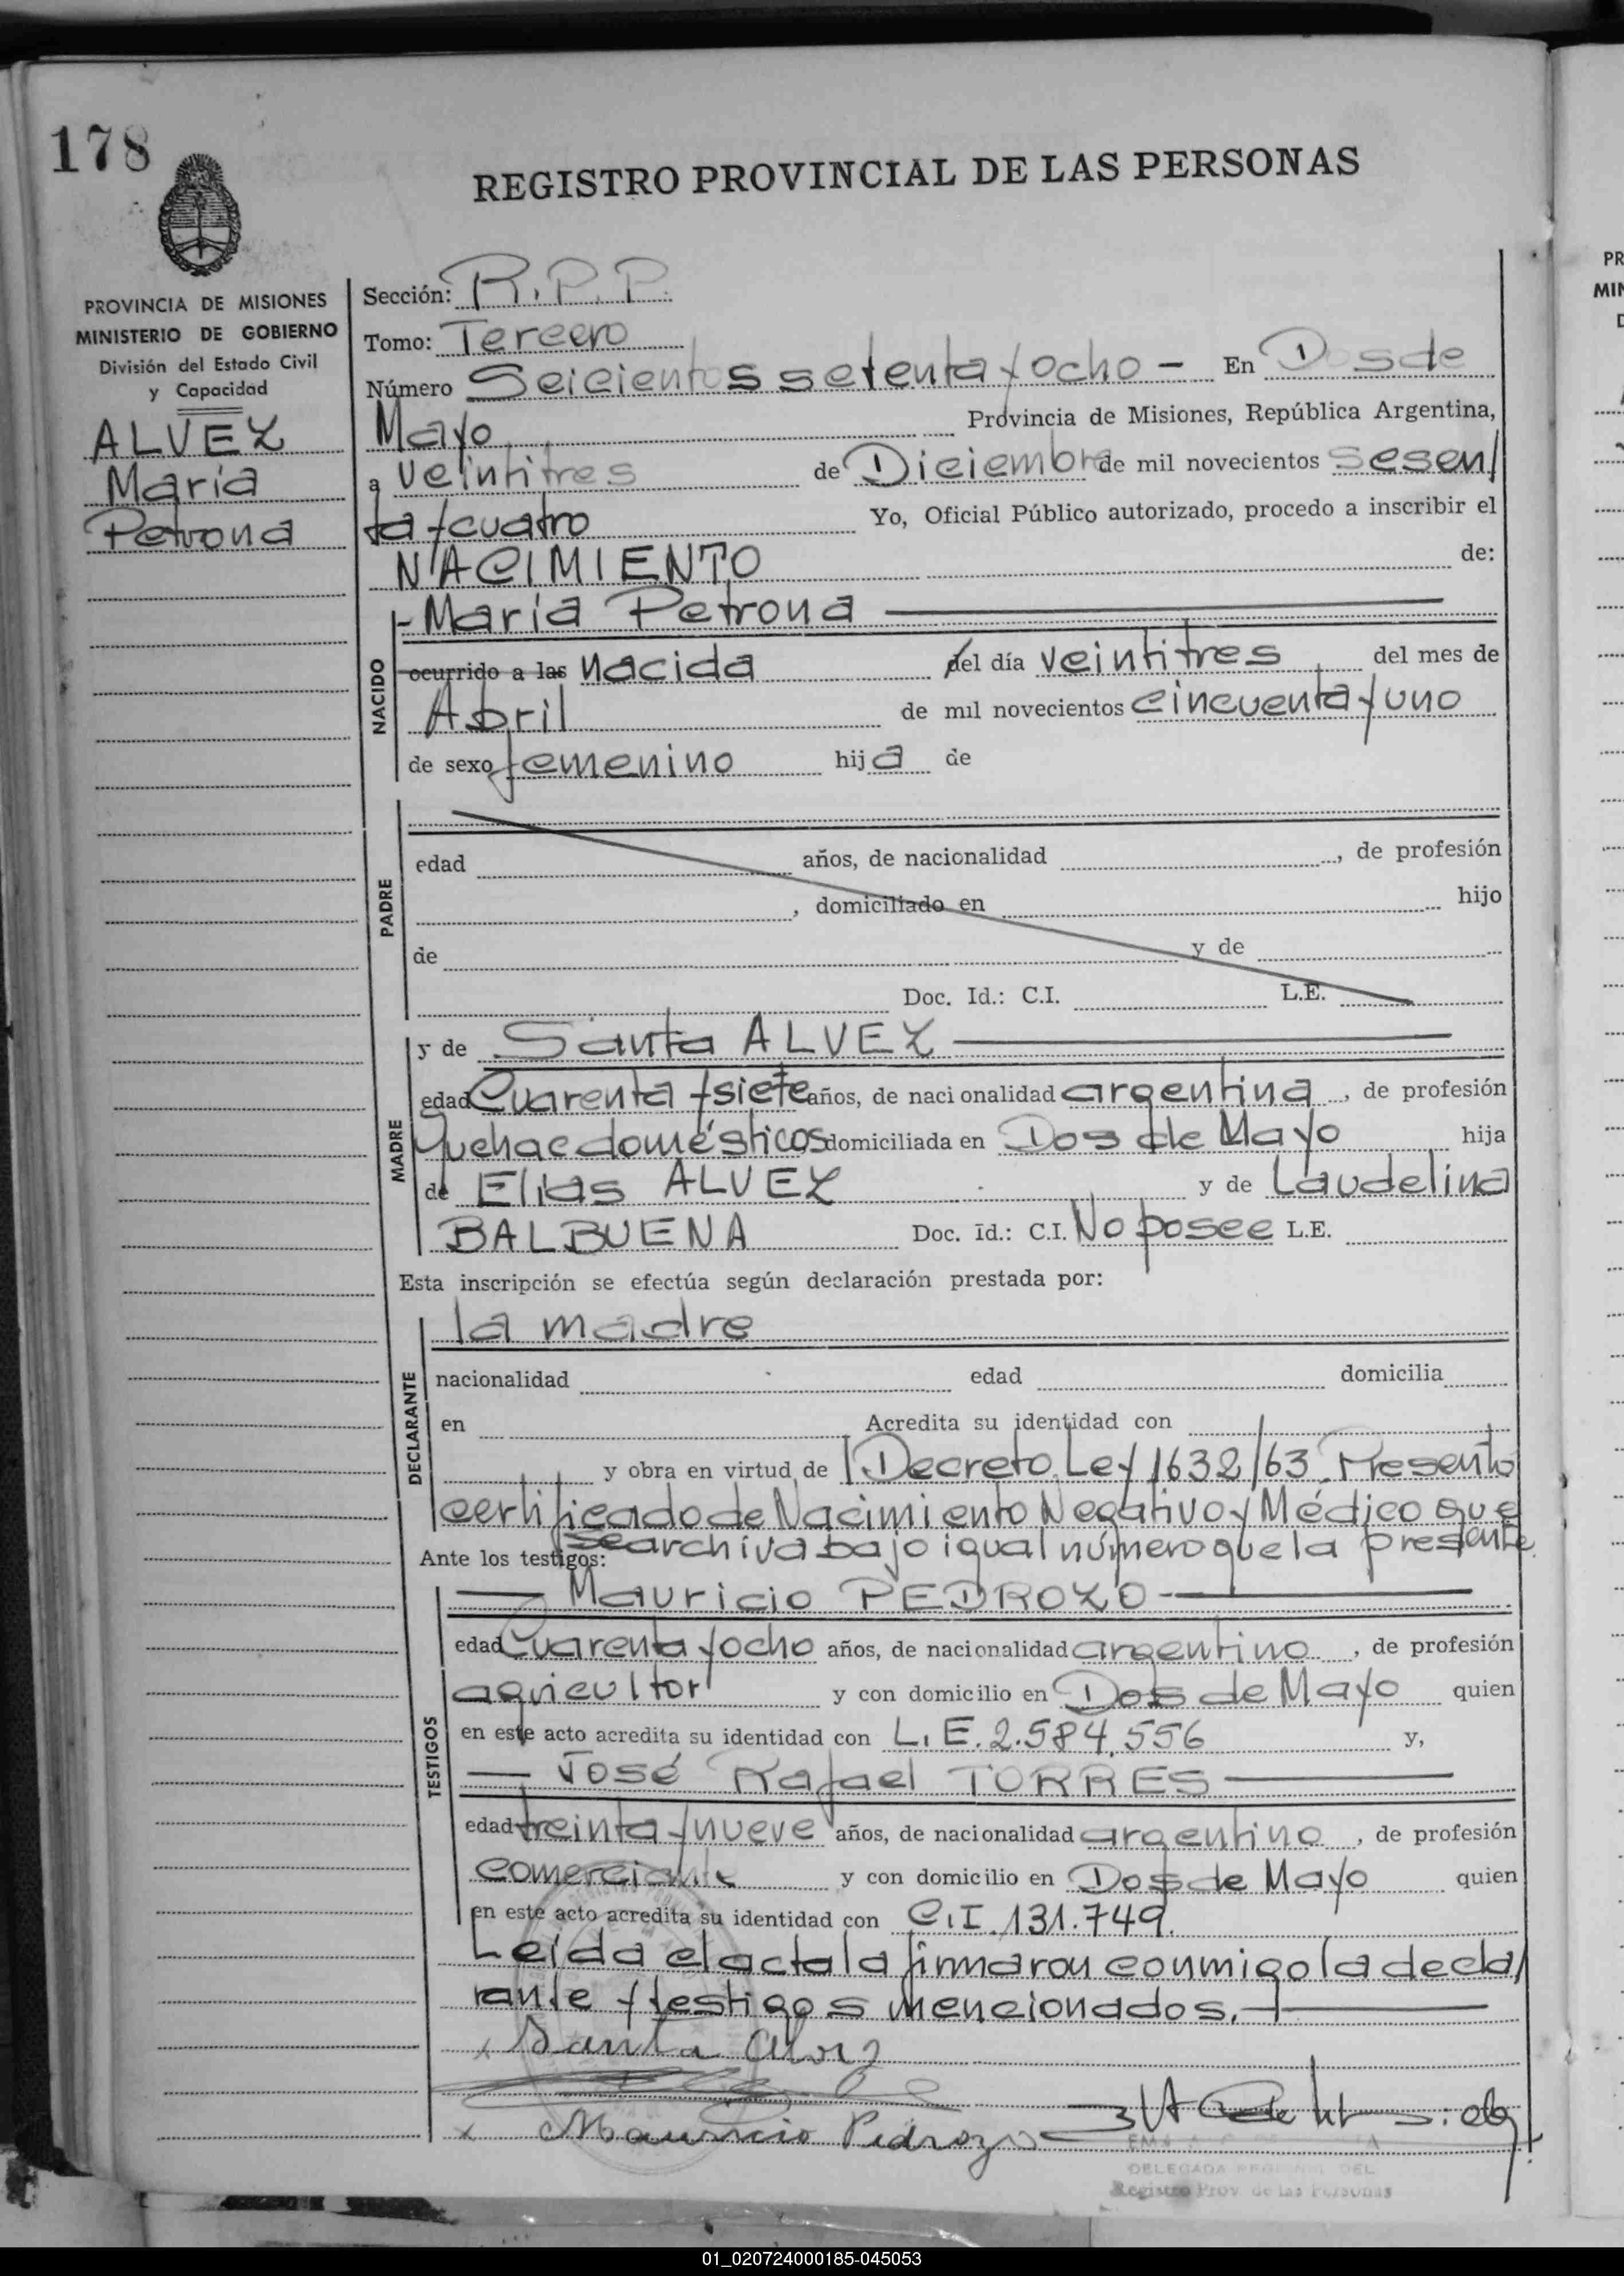 178
REGISTRO PROVINCIAL DE LAS PERSONAS
PROVINCIA DE MISIONES
MINISTERIO DE GOBIERNO
División del Estado Civil
y Capacidad
ALVEZ
María
Petrona
Sección: R.P.P.
Tomo: Tercero
Número Seicientos setenta y ocho - En Dos de
Mayo Provincia de Misiones, República Argentina,
a veintitres de Diciembre de mil novecientos sesen/
ta y cuatro Yo, Oficial Público autorizado, procedo a inscribir el
NACIMIENTO de:
- María Petrona
NACIDO
ocurrido a las nacida del día veintitres del mes de
Abril de mil novecientos cincuenta y uno
de sexo femenino hija de
PADRE
edad años, de nacionalidad , de profesión
, domiciliado en hijo
de y de
Doc. Id.: C.I. L.E.
MADRE
y de Santa ALVEZ
edad Cuarenta y siete años, de nacionalidad argentina , de profesión
Quehac domésticos domiciliada en Dos de Mayo hija
de Elías ALVEZ y de Laudelina
BALBUENA Doc. Id.: C.I. No posee L.E.
Esta inscripción se efectúa según declaración prestada por:
DECLARANTE
la madre
nacionalidad edad domicilia
en Acredita su identidad con
y obra en virtud de Decreto Ley 1632/63. Presentó
certificado de Nacimiento Negativo y Médico que
se archiva bajo igual número que la presente
Ante los testigos:
TESTIGOS
Mauricio PEDROZO
edad Cuarenta y ocho años, de nacionalidad argentino , de profesión
agricultor y con domicilio en Dos de Mayo quien
en este acto acredita su identidad con L.E. 2.584.556 y,
José Rafael TORRES
edad treinta y nueve años, de nacionalidad argentino , de profesión
comerciante y con domicilio en Dos de Mayo quien
en este acto acredita su identidad con C.I. 131.749.
Leída el acta la firmaron conmigo la decla/
rante y testigos mencionados.
x Santa Alvez
x Mauricio Pedrozo
DELEGADA REGIONAL DEL
Registro Prov. de las Personas
01_020724000185-045053